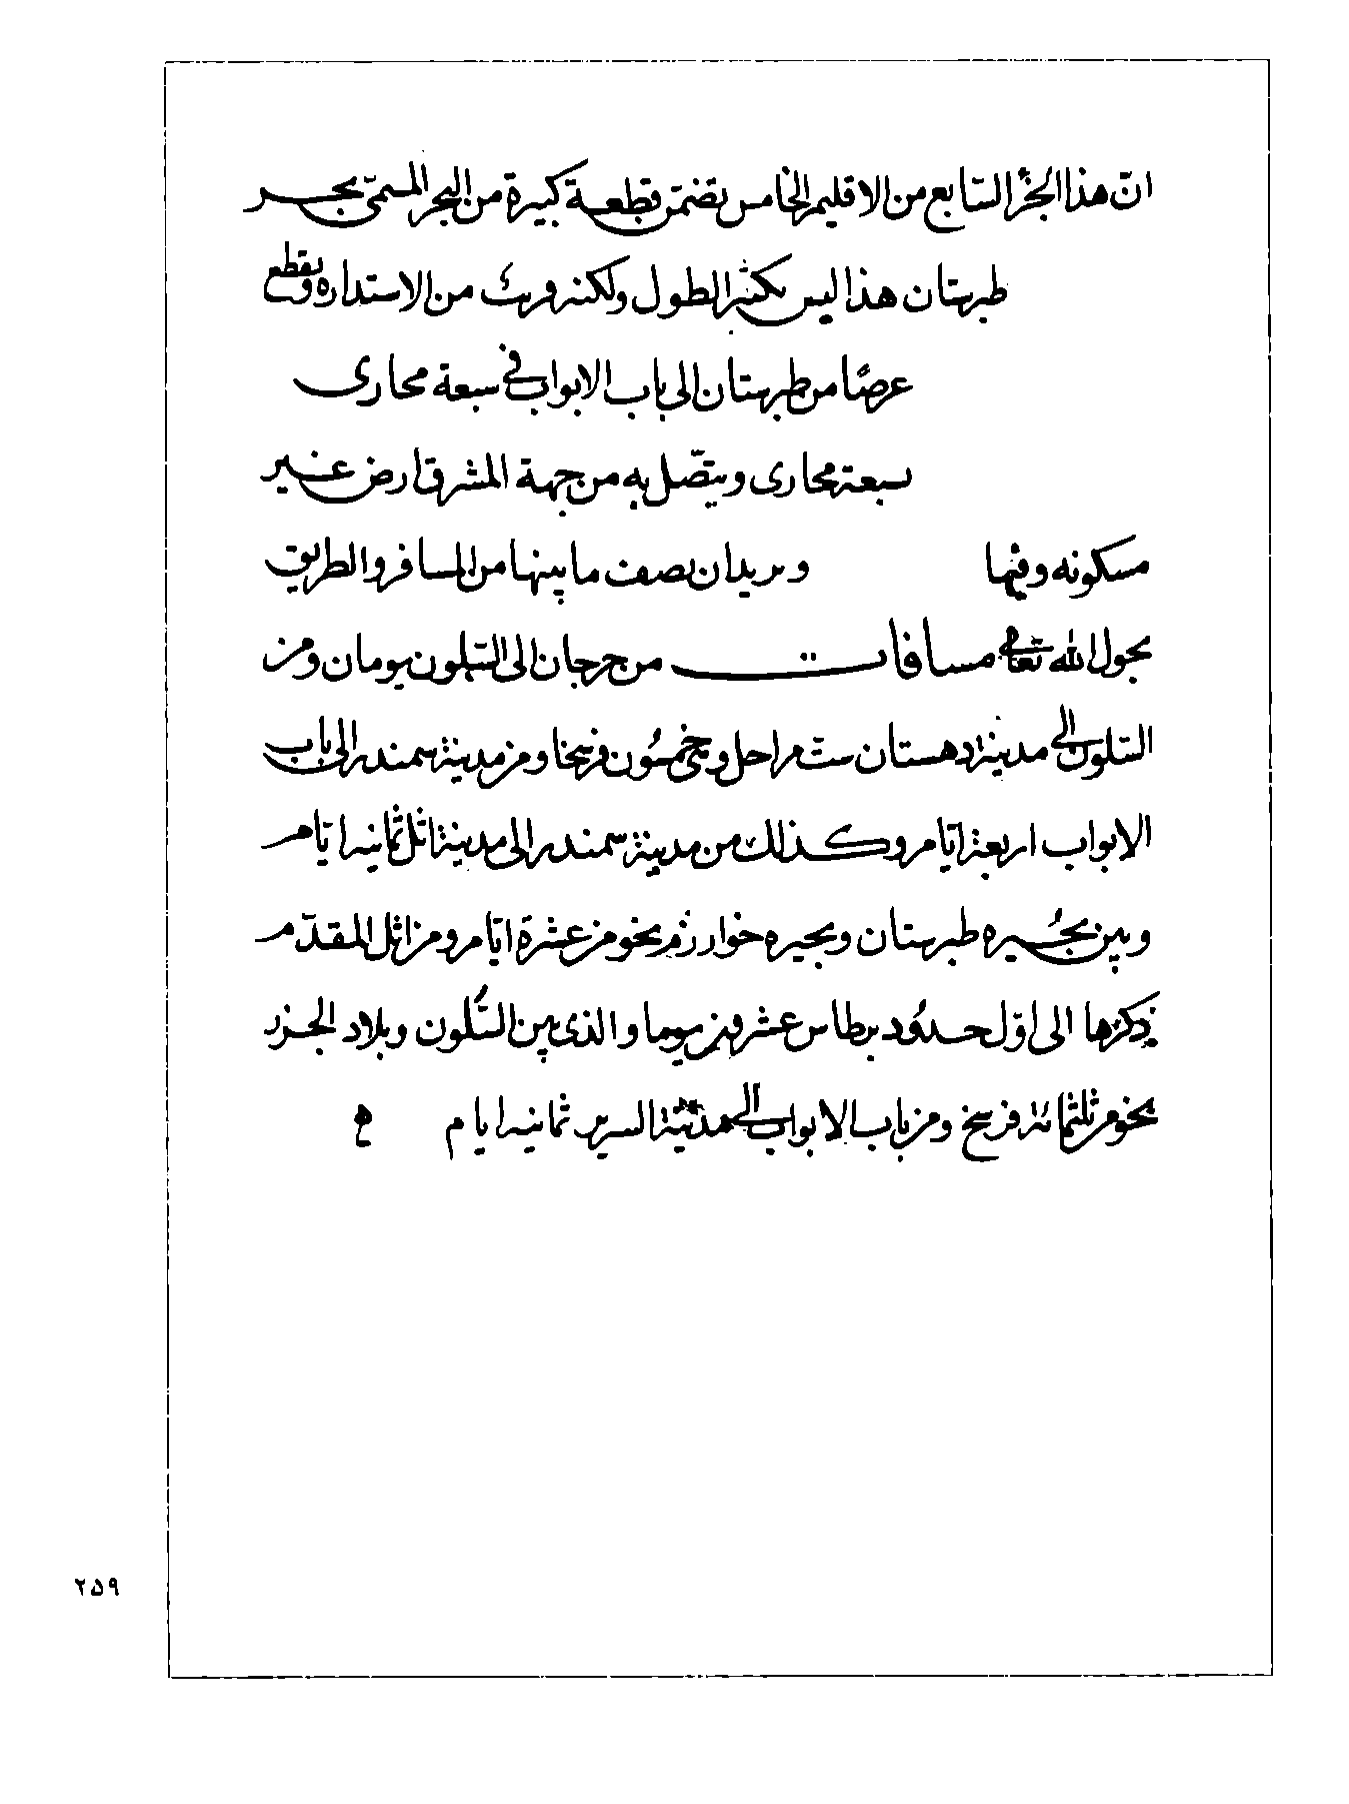 ان هذا الجزء السابع من الاقليم الخامس تضمن قطعة كبيرة من البحر المسمى بحر
طبرستان هذا ليس بكثير الطول ولكنه قريب من الاستداره ويقطع
عرضا من طبرستان الى باب الابواب فى سبعة مجارى
سبعة مجارى ويتصل به من جهة المشرق ارض غير
مسكونه وفيها ونريد ان نصف ما بينها من المسافر والطريق
بحول الله تعالى مسافات من جرجان الى التبلون يومان ومن
التبلون الى مدينة دهستان ست مراحل وهى خمسون فرسخا ومن مدينة سمندر الى باب
الابواب اربعة ايام وكذلك من مدينة سمندر الى مدينة اثل ثمانيه ايام
وبين بحيره طبرستان وبحيره خوارزم نحو من عشرة ايام ومن اثل المقدم
ذكرها الى اول حدود برطاس عشرين يوما والذى بين التبلون وبلاد الخزر
نحو من ثلثمائة فرسخ ومن باب الابواب الى مدينة السرير ثمانيه ايام
٢٥٩